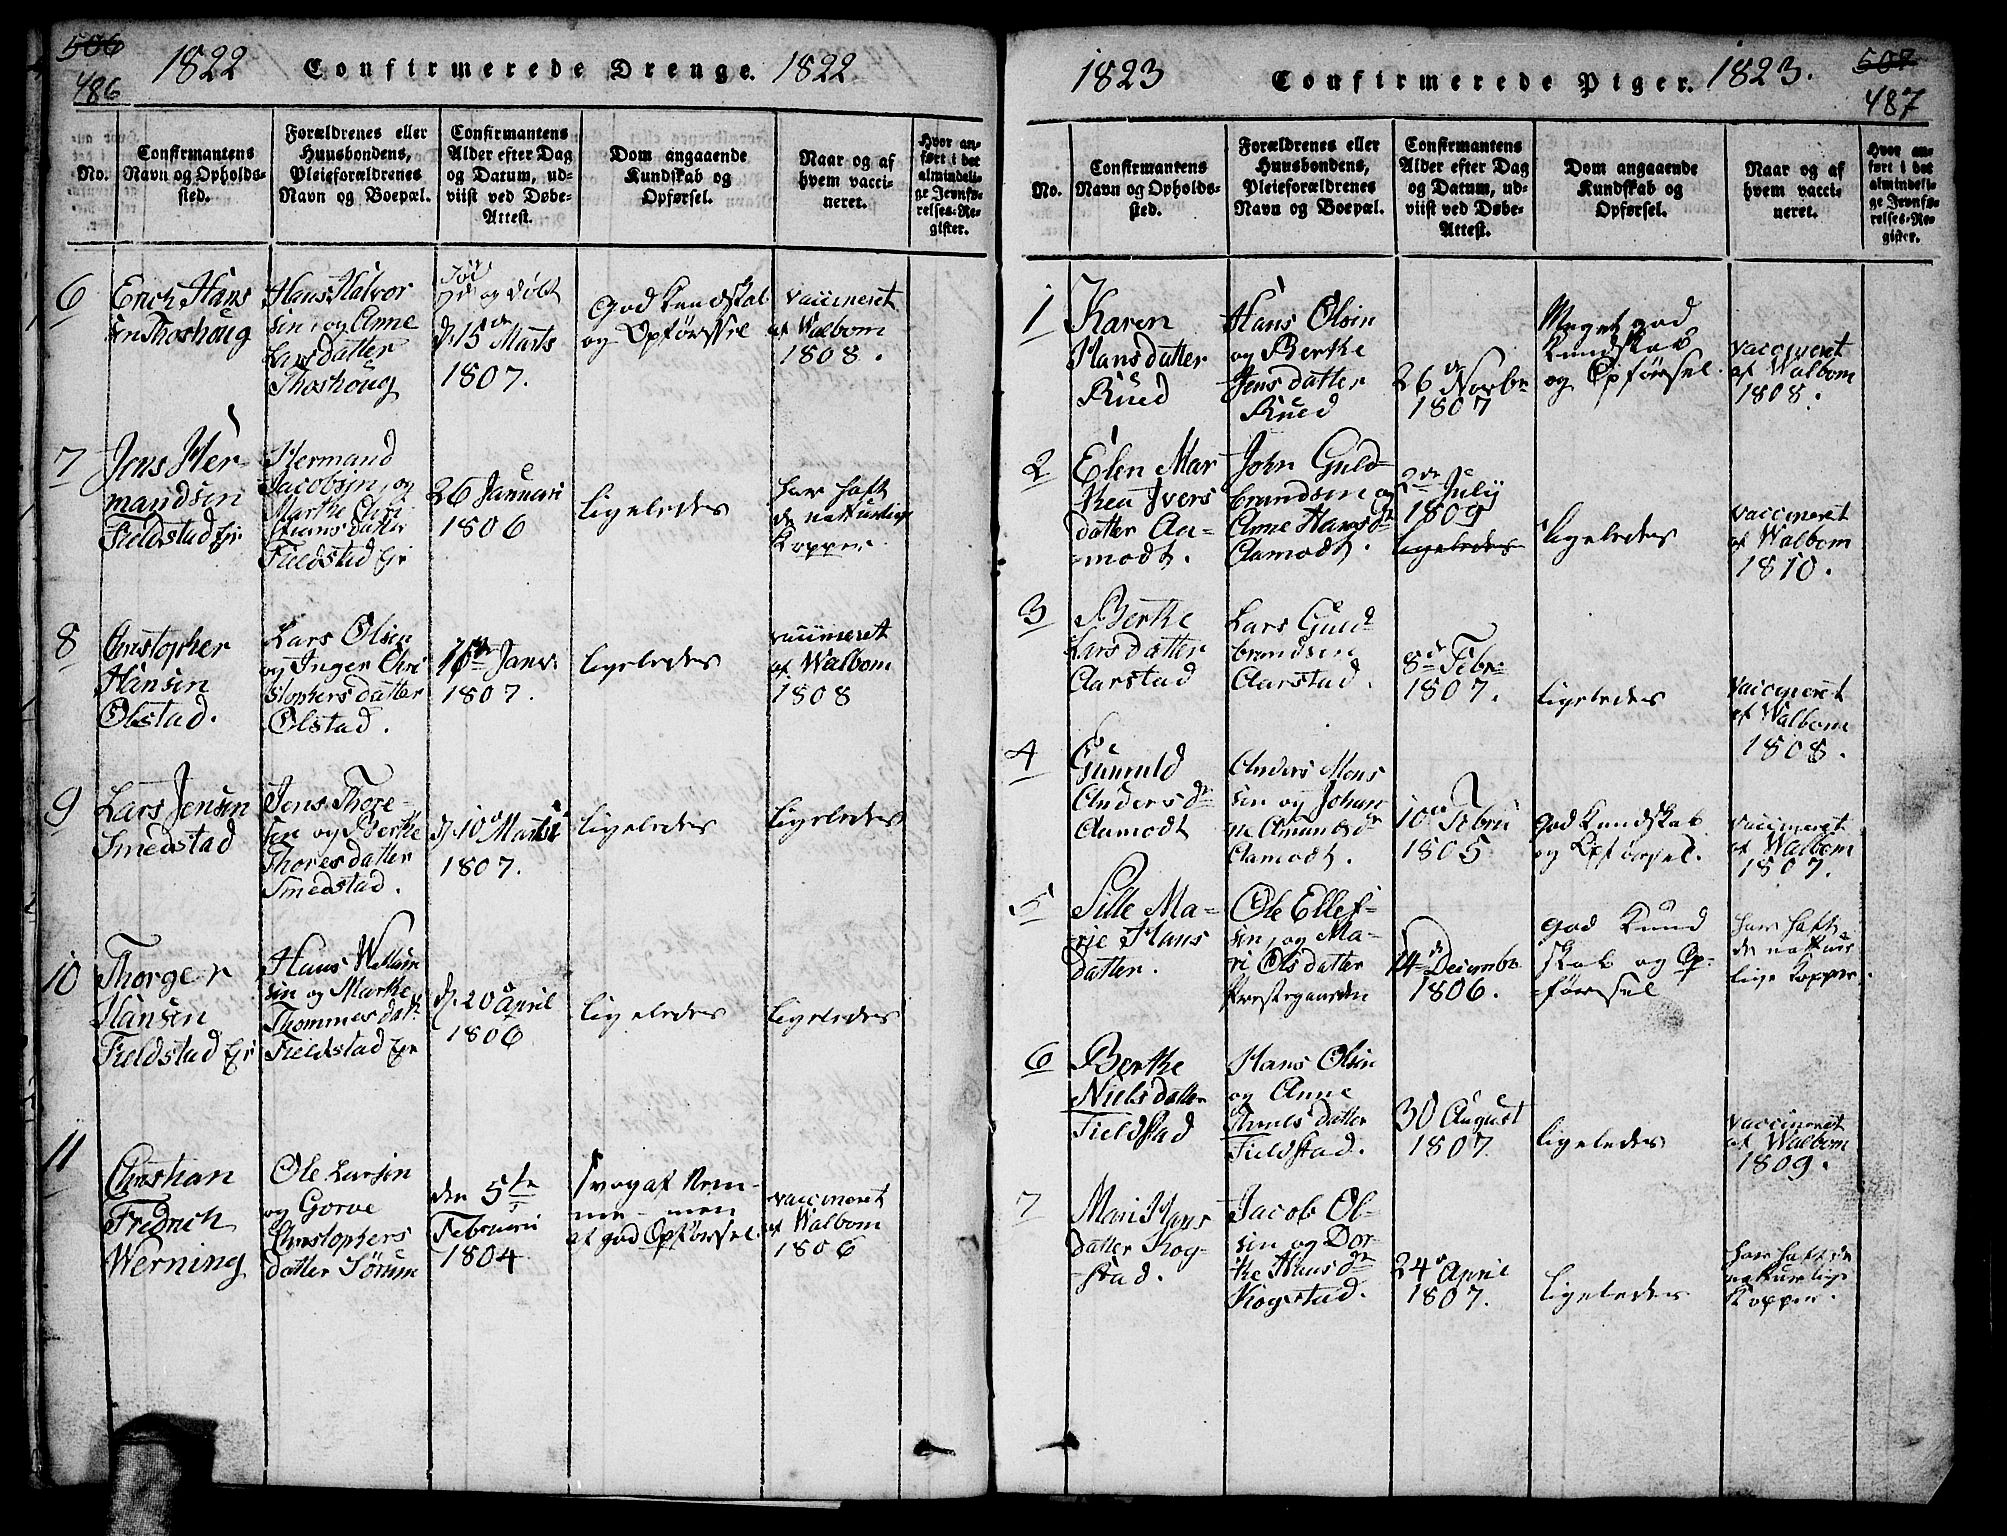 506
486
1822
Confirmerede Drenge.
1822
No.
Confirmantens
Navn og Opholds-
sted.
Forældrenes eller
Huusbondens,
Pleieforældrenes
Navn og Boepæl.
Confirmantens
Alder efter Dag
og Datum, ud-
viist ved Døbe-
Attest.
Dom angaaende
Kundskab og
Opførsel.
Naar og af
hvem vacci-
neret.
Hvor an-
ført i det
almindeli-
ge Jevnfø-
relses-Re-
gister.
6
Erich Hans
sen Thoshoug
Hans Halvor
sen, og Anne
Larsdatter
Thoshoug
Fød
og døbt
d. 15de Marts
1807.
God Kundskab
og Opførssel
vaccineret
af Walbom
1808.
7
Jens Her-
mandsen
Fieldstad Eje
Hermand
Jacobsen, og
Marthe Chri
stiansdatter
Fieldstad Eje
26 Januari
1806
ligeledes
har haft
de naturlige
Kopper
8
Christopher
Hansen
Olstad.
Lars Olsen
og Inger Chri
stophersdatter
Olstad.
16de Janv.
1807.
ligeledes
vaccineret
af Walbom
1808
9
Lars Jensen
Smedstad
Jens Thore-
sen og Berthe
Thoresdatter
Smedstad.
d. 10de Martsi
1807.
ligeledes
ligeledes
10
Thorger
Hansen
Fieldstad Eje
Hans
sen og Marthe
Thommesdatr
Fieldstad Eje
d. 20de April
1806
ligeledes
ligeledes
11
Christian
Fredrich
Werning
Ole Larsen
og Gorve
Christophers
datter Sørum
den 5te
Februari
1804
Svag af Nem-
me - men
af god Opførsel.
vaccineret
af Walbom
1806
1823
Confirmerede Piger.
1823.
507
487
No.
Confirmantens
Navn og Opholds-
sted.
Forældrenes eller
Huusbondens,
Pleieforældrenes
Navn og Boepæl.
Confirmantens
Alder efter Dag
og Datum, ud-
viist ved Døbe-
Attest.
Dom angaaende
Kundskab og
Opførsel.
Naar og af
hvem vacci-
neret.
Hvor an-
ført i det
almindeli-
ge Jevnfø-
relses-Re-
gister.
1
Karen
Hansdatter
Rued
Hans Olsen
og Berthe
Jensdatter
Rued
26de Novbr
1807
Meget god
Kundskab
og Opførsel.
vaccineret
af Walbom
1808.
2
Elen Mar
thea Ivers
datter Aa-
-modt.
John Guld-
brandsen og
Anne Hansdr
Aamodt.
2de July
1809
ligeledes
ligeledes
vaccineret
af Walbom
1810.
3
Berthe
Larsdatter
Aarstad
Lars Guld-
brandsen
Aarstad.
8de Febr.
1807.
ligeledes
vaccineret
af Walbom
1808.
4
Gunnild
Andersdr
Aamodt
Anders Mons
sen og Johan
ne Amundsdr
Aamodt.
10de Febru
1805
God Kundskab
og Opførsel.
vaccineret
af Walbom
1807.
5
Sille Ma-
rie Hans
datter.
Ole Ellef-
sen, og Ma-
ri Olsdatter
Præstegaarden
14de Decembr
1806.
God Kund
skab og Op-
-førsel
har haft
de natur
lige Kopper.
6
Berthe
Nielsdatter
Fieldstad
Hans Olsen
og Anne
datter
Fieldstad.
30 August
1807.
ligeledes
vaccineret
af Walbom
1809.
7
Mari Hans
datter Kog-
-stad.
Jacob Ol-
sen og Dor-
the Hansdr
Kogstad.
24de April
1807.
ligeledes
har haft de
naturlige
Kopper.